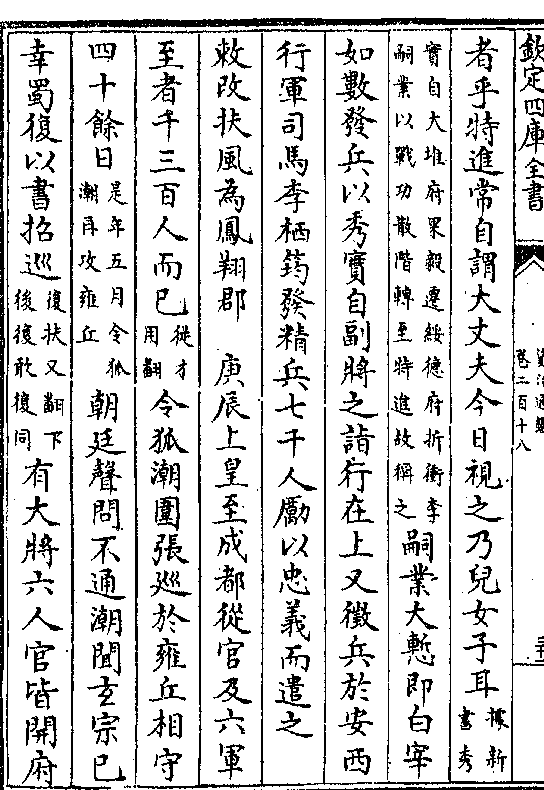 欽定四庫全書
資治通鑑
卷二百十八
者乎特進常自謂大丈夫今日視之乃兒女子耳
據新
書秀
實自大堆府果毅遷綏德府折衝李
嗣業以戰功散階轉至特進故稱之
嗣業大慙即白宰
如數發兵以秀實自副將之詣行在上又徵兵於安西
行軍司馬李栖筠發精兵七千人勵以忠義而遣之
敕改扶風為鳳翔郡 庚辰上皇至成都從官及六軍
至者千三百人而已
從才
用翻
令狐潮圍張巡於雍丘相守
四十餘日
是年五月令狐
潮再攻雍丘
朝廷聲問不通潮聞玄宗已
幸蜀復以書招巡
復扶又翻下
後復敢復同
有大將六人官皆開府